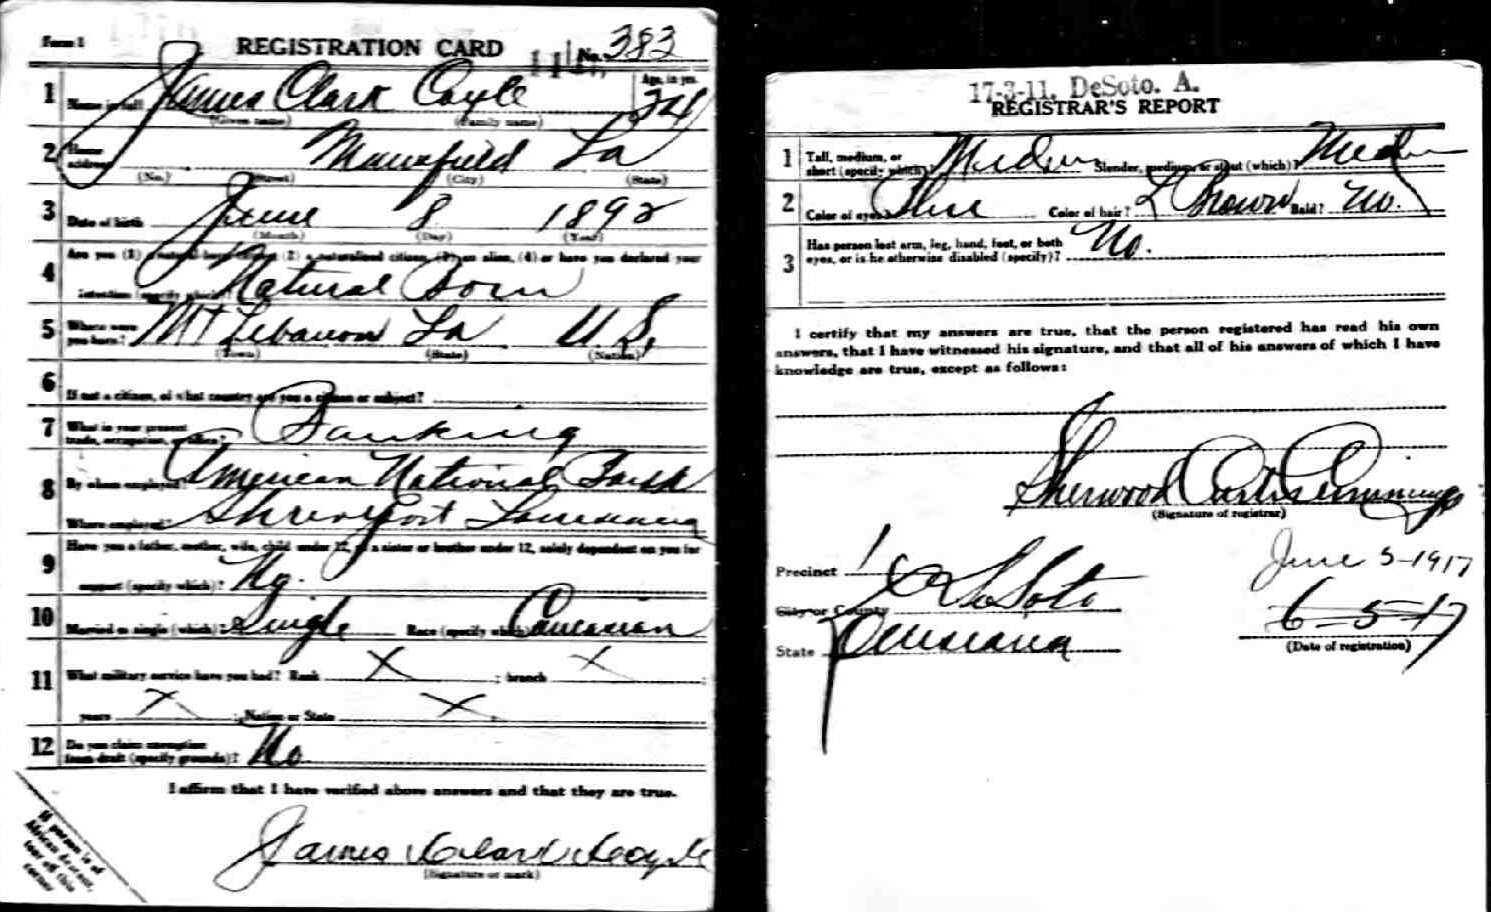 Form 1 REGISTRATION CARD No. 383
1 Name in full James Clark Coyle Age, in yrs. 24
(Given name) (Family name)
2 Home address Mansfield La
(No.) (Street) (City) (State)
3 Date of birth June 8 1892
(Month) (Day) (Year)
4 Are you (1) a natural-born citizen, (2) a naturalized citizen, (3) an alien, (4) or have you declared your
intention (specify which)? Natural Born
5 Where were you born? Mt Lebanon La U.S.
(Town) (State) (Nation)
6 If not a citizen, of what country are you a citizen or subject?
7 What is your present trade, occupation, or office? Banking
8 By whom employed? American National Bank
Where employed? Shreveport Louisiana
9 Have you a father, mother, wife, child under 12, or a sister or brother under 12, solely dependent on you for
support (specify which)? No.
10 Married or single (which)? Single Race (specify which)? Caucasian
11 What military service have you had? Rank X ; branch X ;
years X ; Nation or State X
12 Do you claim exemption from draft (specify grounds)? No
I affirm that I have verified above answers and that they are true.
James Clark Coyle
(Signature or mark)
If person is of
African descent,
tear off this
corner
17-3-11. DeSoto. A.
REGISTRAR'S REPORT
1 Tall, medium, or short (specify which)? Medium Slender, medium, or stout (which)? Medium
2 Color of eyes? Blue Color of hair? L Brown Bald? No.
3 Has person lost arm, leg, hand, foot, or both
eyes, or is he otherwise disabled (specify)? No.
I certify that my answers are true, that the person registered has read his own
answers, that I have witnessed his signature, and that all of his answers of which I have
knowledge are true, except as follows:
Sherwood Curtis Cummings
(Signature of registrar)
Precinct 1
June 5-1917
City or County DeSoto
6-5-17
State Louisiana
(Date of registration)